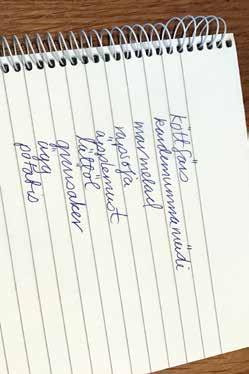 köttfärs
kardemummamjödi
marmelad
rapsolja
äpplemust
lättöl
grönsaker
ägg
potatis